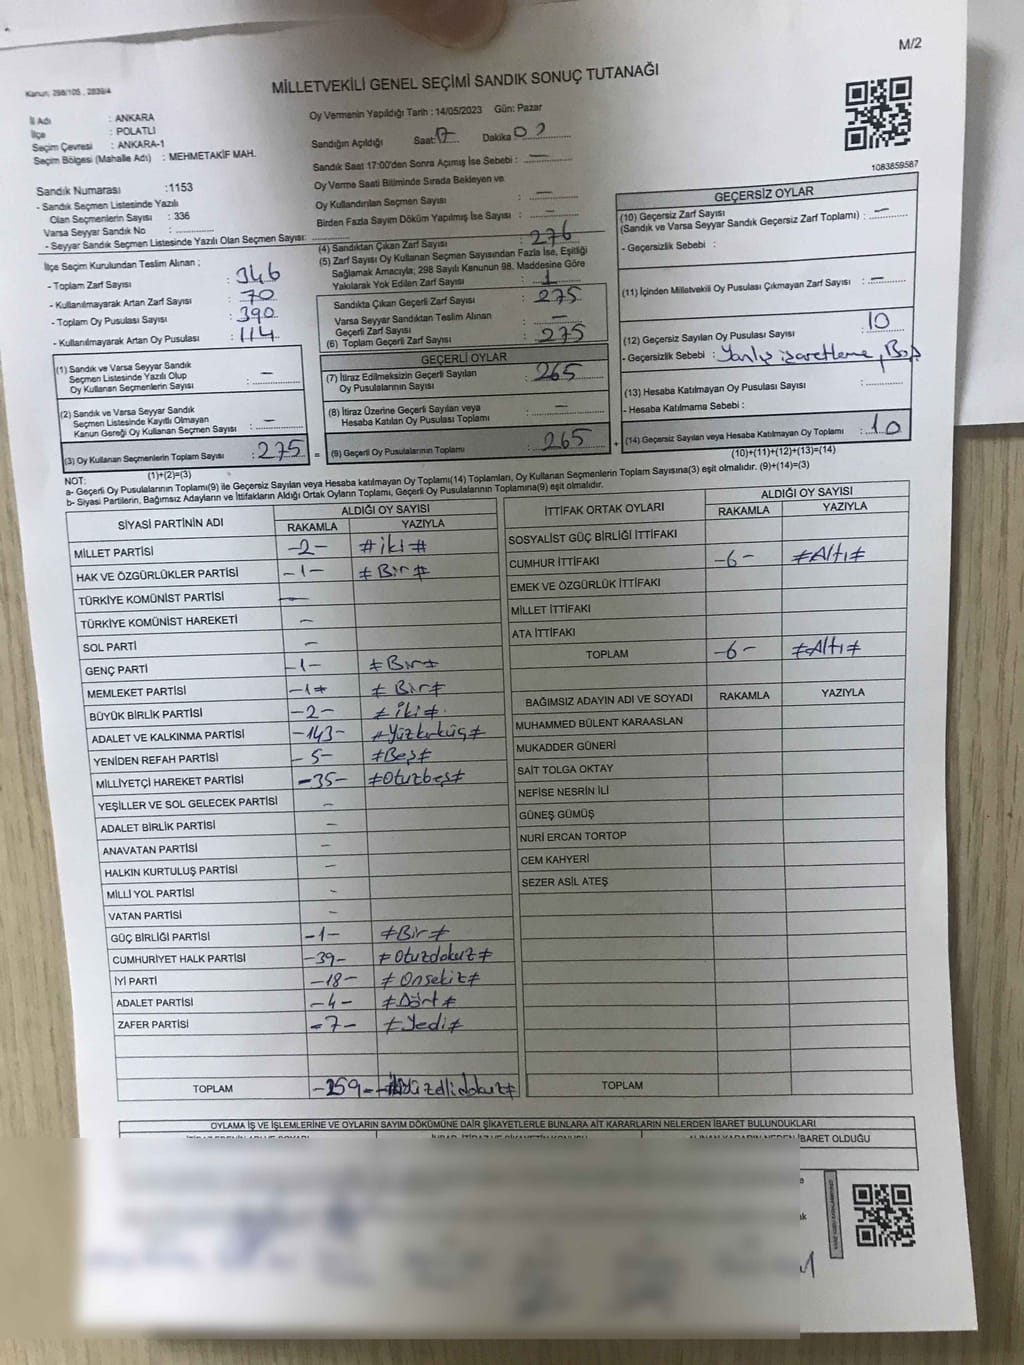 M/2
Kanun: 298/105 , 2839/4
MİLLETVEKİLİ GENEL SEÇİMİ SANDIK SONUÇ TUTANAĞI
İl Adı : ANKARA
İlçe : POLATLI
Seçim Çevresi : ANKARA-1
Seçim Bölgesi (Mahalle Adı) : MEHMETAKİF MAH.
Sandık Numarası :1153
- Sandık Seçmen Listesinde Yazılı
Olan Seçmenlerin Sayısı : 336
Varsa Seyyar Sandık No :
- Seyyar Sandık Seçmen Listesinde Yazılı Olan Seçmen Sayısı:
Oy Vermenin Yapıldığı Tarih : 14/05/2023 Gün: Pazar
Sandığın Açıldığı Saat: 17 Dakika 02
Sandık Saat 17:00'den Sonra Açımış İse Sebebi : —
Oy Verme Saati Bitiminde Sırada Bekleyen ve
Oy Kullandırılan Seçmen Sayısı : —
Birden Fazla Sayım Döküm Yapılmış İse Sayısı : —
1083859587
İlçe Seçim Kurulundan Teslim Alınan ;
- Toplam Zarf Sayısı : 346
- Kullanılmayarak Artan Zarf Sayısı : 70
- Toplam Oy Pusulası Sayısı : 390
- Kullanılmayarak Artan Oy Pusulası : 114
(1) Sandık ve Varsa Seyyar Sandık
Seçmen Listesinde Yazılı Olup
Oy Kullanan Seçmenlerin Sayısı : —
(2) Sandık ve Varsa Seyyar Sandık
Seçmen Listesinde Kayıtlı Olmayan
Kanun Gereği Oy Kullanan Seçmen Sayısı : —
(3) Oy Kullanan Seçmenlerin Toplam Sayısı : 275 =
(1)+(2)=(3)
(4) Sandıktan Çıkan Zarf Sayısı : 276
(5) Zarf Sayısı Oy Kullanan Seçmen Sayısından Fazla İse, Eşitliği
Sağlamak Amacıyla; 298 Sayılı Kanunun 98. Maddesine Göre
Yakılarak Yok Edilen Zarf Sayısı : 1
Sandıkta Çıkan Geçerli Zarf Sayısı : 275
Varsa Seyyar Sandıktan Teslim Alınan
Geçerli Zarf Sayısı : —
(6) Toplam Geçerli Zarf Sayısı : 275
GEÇERLİ OYLAR
(7) İtiraz Edilmeksizin Geçerli Sayılan
Oy Pusulalarının Sayısı : 265
(8) İtiraz Üzerine Geçerli Sayılan veya
Hesaba Katılan Oy Pusulası Toplamı : —
(9) Geçerli Oy Pusulalarının Toplamı : 265 +
GEÇERSİZ OYLAR
(10) Geçersiz Zarf Sayısı
(Sandık ve Varsa Seyyar Sandık Geçersiz Zarf Toplamı) : —
- Geçersizlik Sebebi :
(11) İçinden Milletvekili Oy Pusulası Çıkmayan Zarf Sayısı : —
(12) Geçersiz Sayılan Oy Pusulası Sayısı 10
- Geçersizlik Sebebi : Yanlış işaretleme, Boş
(13) Hesaba Katılmayan Oy Pusulası Sayısı :
- Hesaba Katılmama Sebebi :
(14) Geçersiz Sayılan veya Hesaba Katılmayan Oy Toplamı : 10
(10)+(11)+(12)+(13)=(14)
NOT:
a- Geçerli Oy Pusulalarının Toplamı(9) ile Geçersiz Sayılan veya Hesaba katılmayan Oy Toplamı(14) Toplamları, Oy Kullanan Seçmenlerin Toplam Sayısına(3) eşit olmalıdır. (9)+(14)=(3)
b- Siyasi Partilerin, Bağımsız Adayların ve İttifakların Aldığı Ortak Oyların Toplamı, Geçerli Oy Pusulalarının Toplamına(9) eşit olmalıdır.
SİYASİ PARTİNİN ADI ALDIĞI OY SAYISI
RAKAMLA YAZIYLA
MİLLET PARTİSİ -2- #iki#
HAK VE ÖZGÜRLÜKLER PARTİSİ -1- #Bir#
TÜRKİYE KOMÜNİST PARTİSİ —
TÜRKİYE KOMÜNİST HAREKETİ –
SOL PARTİ –
GENÇ PARTİ -1- #Bir#
MEMLEKET PARTİSİ -1- #Bir#
BÜYÜK BİRLİK PARTİSİ -2- #iki#
ADALET VE KALKINMA PARTİSİ -143- #Yüzkırküç#
YENİDEN REFAH PARTİSİ -5- #Beş#
MİLLİYETÇİ HAREKET PARTİSİ -35- #Otuzbeş#
YEŞİLLER VE SOL GELECEK PARTİSİ –
ADALET BİRLİK PARTİSİ –
ANAVATAN PARTİSİ –
HALKIN KURTULUŞ PARTİSİ –
MİLLİ YOL PARTİSİ -
VATAN PARTİSİ –
GÜÇ BİRLİĞİ PARTİSİ -1- #Bir#
CUMHURİYET HALK PARTİSİ -39- #Otuzdokuz#
İYİ PARTİ -18- #Onsekiz#
ADALET PARTİSİ -4- #Dört#
ZAFER PARTİSİ -7- #Yedi#
TOPLAM -259-
İTTİFAK ORTAK OYLARI ALDIĞI OY SAYISI
RAKAMLA YAZIYLA
SOSYALİST GÜÇ BİRLİĞİ İTTİFAKI
CUMHUR İTTİFAKI -6- #Altı#
EMEK VE ÖZGÜRLÜK İTTİFAKI
MİLLET İTTİFAKI
ATA İTTİFAKI
TOPLAM -6- #Altı#
BAĞIMSIZ ADAYIN ADI VE SOYADI RAKAMLA YAZIYLA
MUHAMMED BÜLENT KARAASLAN
MUKADDER GÜNERİ
SAİT TOLGA OKTAY
NEFİSE NESRİN İLİ
GÜNEŞ GÜMÜŞ
NURİ ERCAN TORTOP
CEM KAHYERİ
SEZER ASİL ATEŞ
TOPLAM
OYLAMA İŞ VE İŞLEMLERİNE VE OYLARIN SAYIM DÖKÜMÜNE DAİR ŞİKAYETLERLE BUNLARA AİT KARARLARIN NELERDEN İBARET BULUNDUKLARI
İBARET OLDUĞU